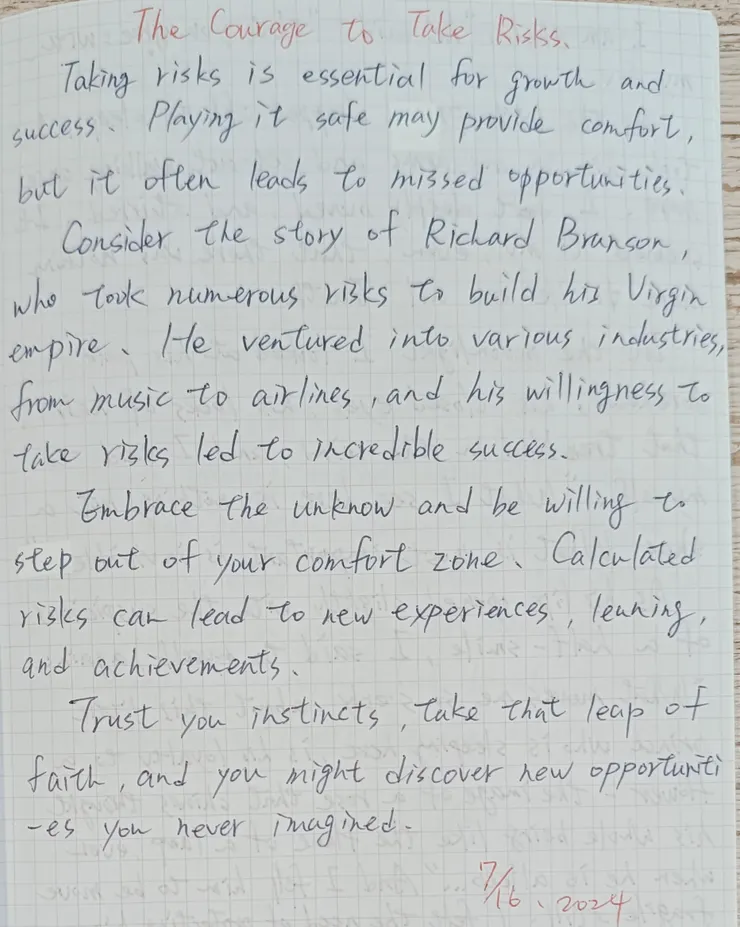 The Courage to Take Risks.
Taking risks is essential for growth and
success. Playing it safe may provide comfort,
but it often leads to missed opportunities.
Consider the story of Richard Branson,
who took numerous risks to build his Virgin
empire. He ventured into various industries,
from music to airlines, and his willingness to
take risks led to incredible success.
Embrace the unknow and be willing to
step out of your comfort zone. Calculated
risks can lead to new experiences, learning,
and achievements.
Trust you instincts, take that leap of
faith, and you might discover new opportuniti
-es you never imagined.
7/16. 2024